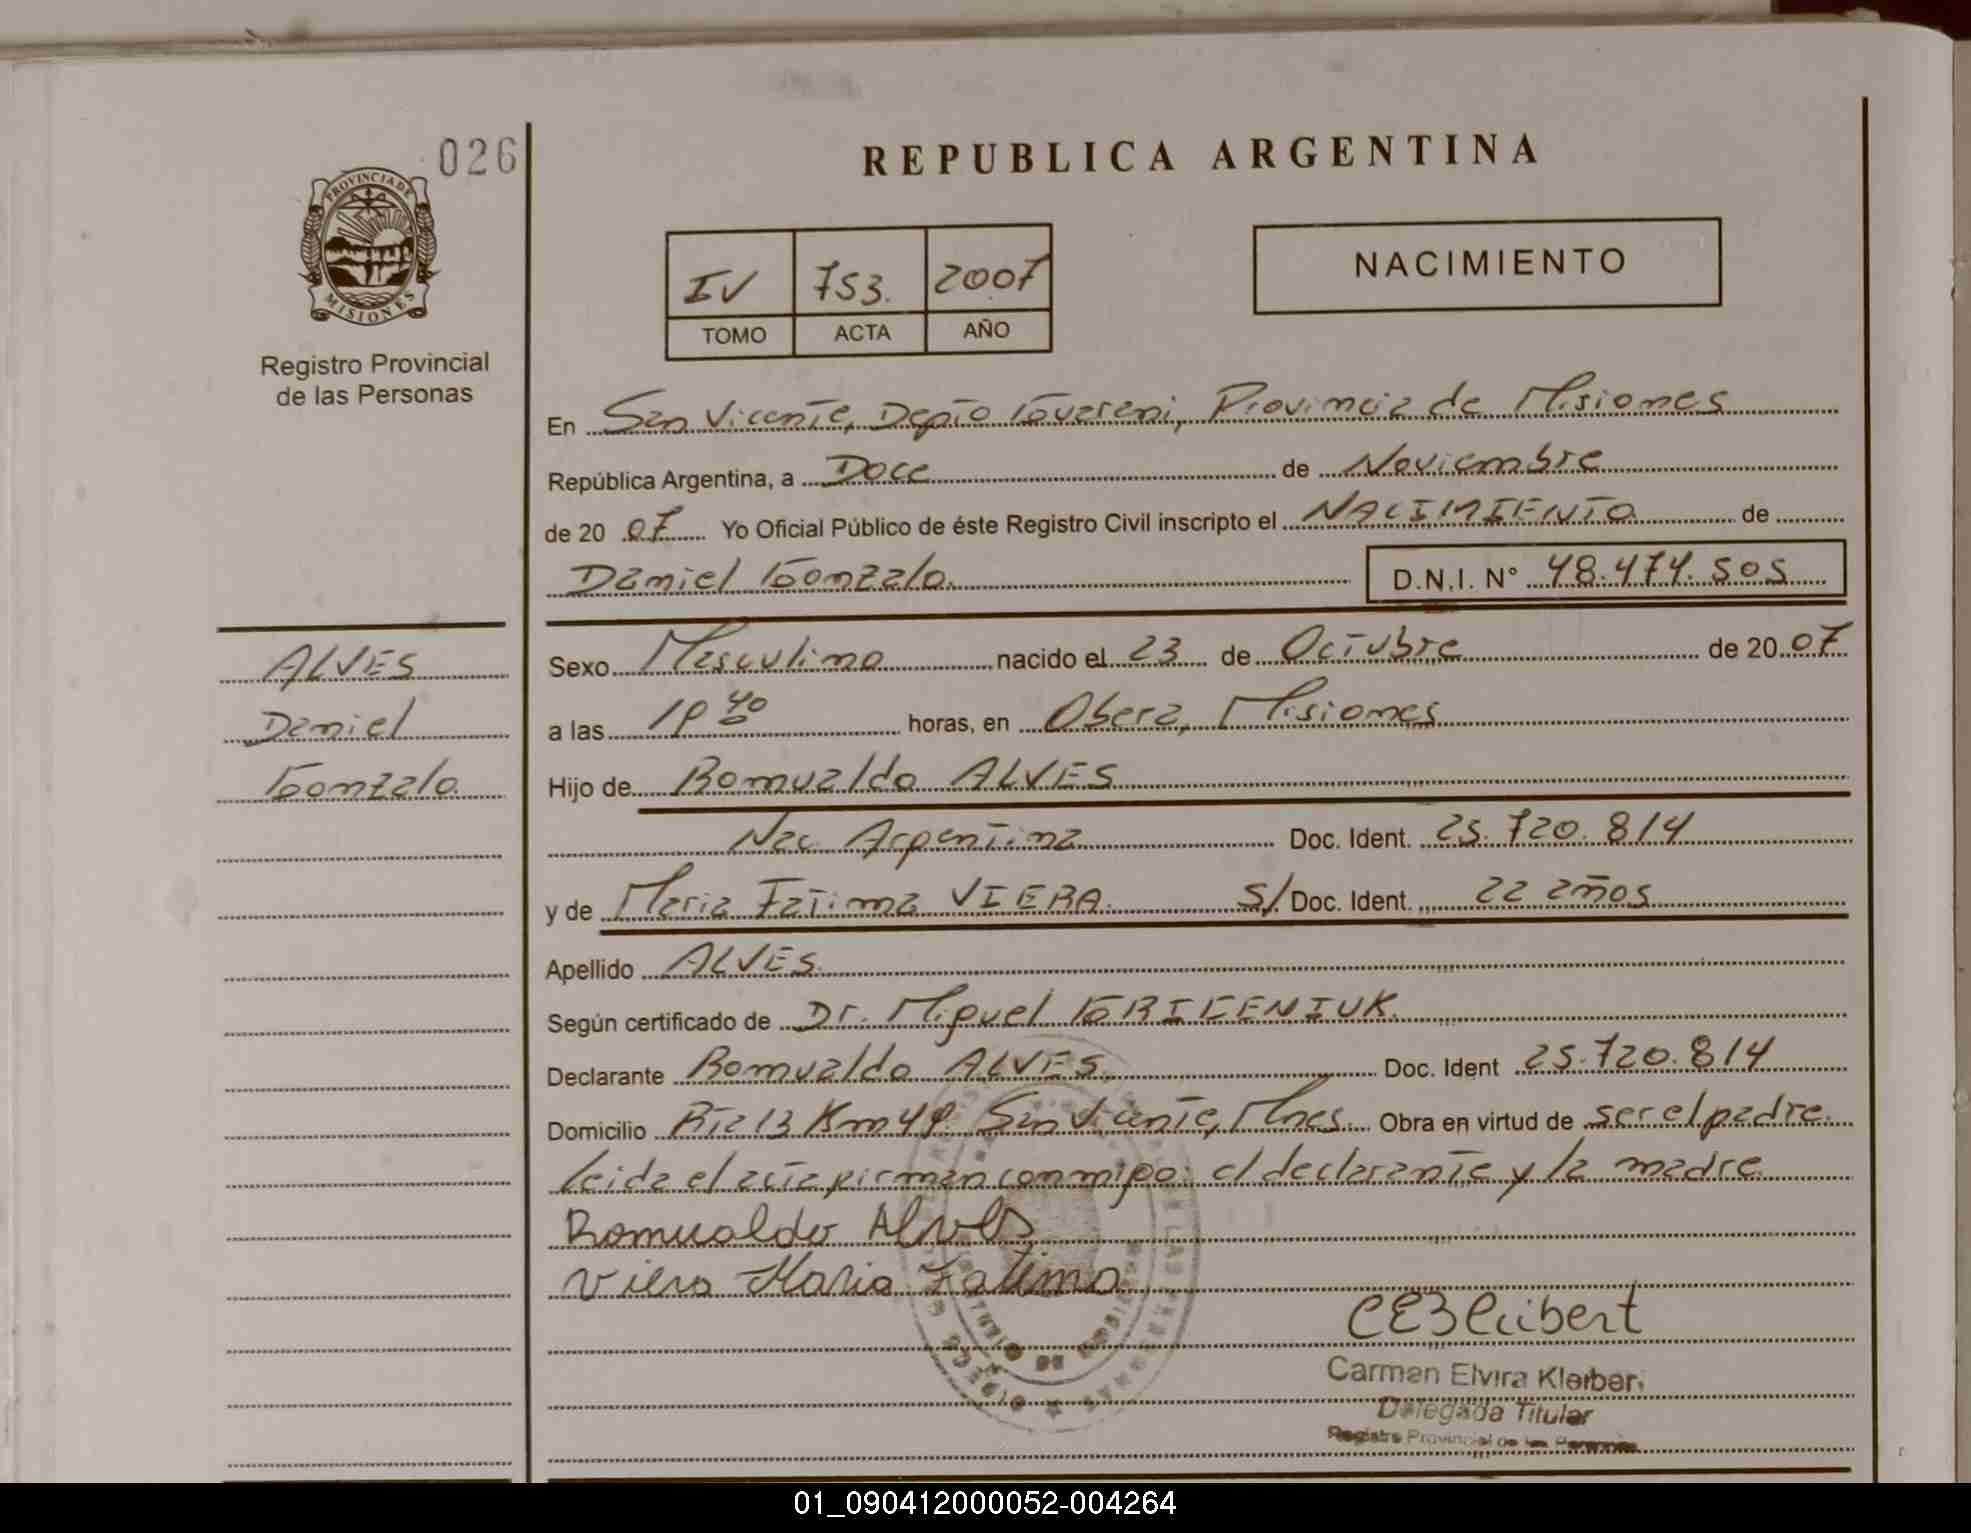 026
REPUBLICA ARGENTINA
PROVINCIA DE
MISIONES
Registro Provincial
de las Personas
IV 753. 2007
TOMO ACTA AÑO
NACIMIENTO
En San Vicente, Depto Guarani, Provincia de Misiones
República Argentina, a Doce de Noviembre
de 20 07 Yo Oficial Público de éste Registro Civil inscripto el NACIMIENTO de
Daniel Gonzalo. D.N.I. N° 48.474.505
ALVES
Daniel
Gonzalo.
Sexo Masculino nacido el 23 de Octubre de 20 07
a las 19 40 horas, en Obera, Misiones
Hijo de Romualdo ALVES
Nac. Argentina Doc. Ident. 25.720.814
y de Maria Fatima VIERA. S/ Doc. Ident. 22 años
Apellido ALVES.
Según certificado de Dr. Miguel
Declarante Romualdo ALVES. Doc. Ident 25.720.814
Domicilio Rta 13 Km 49. San Vicente, Mnes. Obra en virtud de ser el padre.
Leida el acta firman conmigo: el declarante y la madre
Romualdo Alves
Viera Maria Fatima
Carmen Elvira Kleiber
Delegada Titular
Registro Provincial de las Personas
01_090412000052-004264